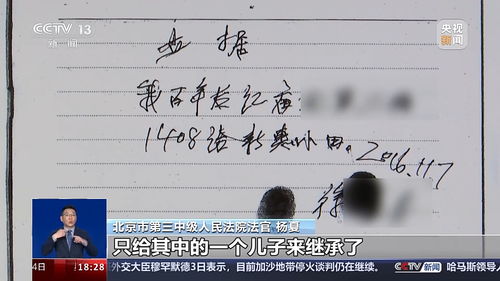 CCTV 13
新闻
央视新闻
据
我百年后红庙
1408给
2016.11.7
徐
北京市第三中级人民法院法官 杨夏
只给其中的一个儿子来继承了
4日 18:28 外交大臣穆罕默德3日表示，目前加沙地带停火谈判仍在继续。 CCTV新闻 哈马斯领导人